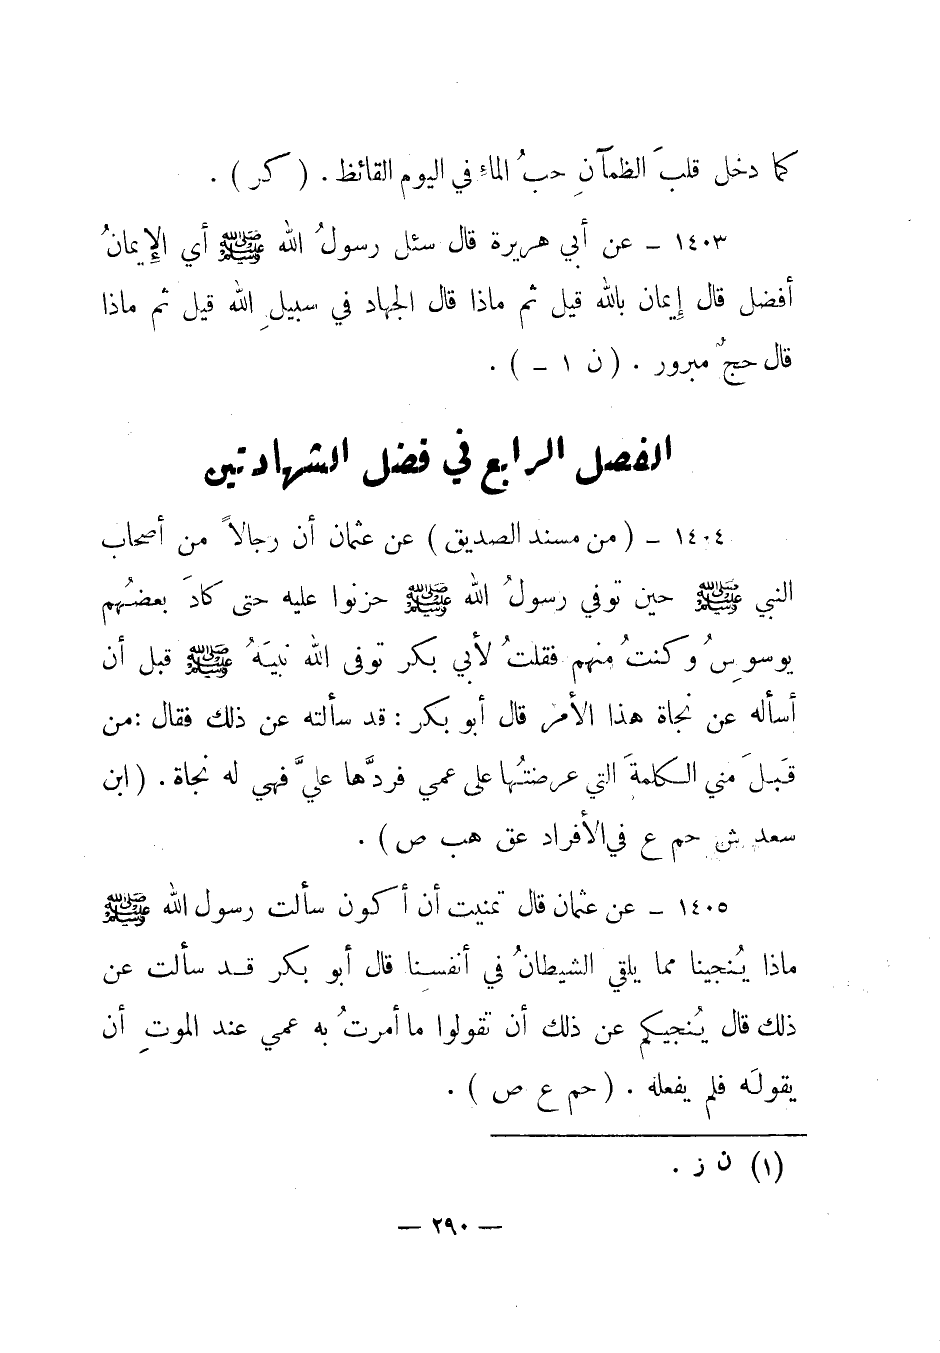 كما دخل قلبَ الظمآنِ حبُ الماء في اليوم القائظ . ( كر ) .
١٤٠٣ ـ عن أبي هريرة قال سئل رسولُ الله ﷺ أي الإِيمانُ
أفضل قال إِيمان بالله قيل ثم ماذا قال الجهاد في سبيلِ الله قيل ثم ماذا
قال حجٌ مبرور . ( ن ١ ـ ) .
الفصل الرابع في فضل الشهادتين
١٤٠٤ ـ ( من مسند الصديق ) عن عثمان أن رجالاً من أصحاب
النبي ﷺ حين توفي رسولُ الله ﷺ حزنوا عليه حتى كادَ بعضُهم
يوسوِسُ وكنتُ منهم فقلتُ لأبي بكر توفى الله نبيَهُ ﷺ قبل أن
أسأله عن نجاة هذا الأمر قال أبو بكر : قد سألته عن ذلك فقال : من
قَبلَ مني الكلمةَ التي عرضتُها على عمي فردَّها عليَّ فهي له نجاة . ( ابن
سعد ش حم ع في الأفراد عق هب ص ) .
١٤٠٥ ـ عن عثمان قال تمنيت أن أكون سألت رسول الله ﷺ
ماذا يُنجينا مما يلقي الشيطانُ في أنفسِنا قال أبو بكر قد سألت عن
ذلك قال يُنجيكم عن ذلك أن تقولوا ما أمرتُ به عمي عند الموتِ أن
يقولَه فلم يفعله . ( حم ع ص ) .
(١) ن ز .
— ٢٩٠ —